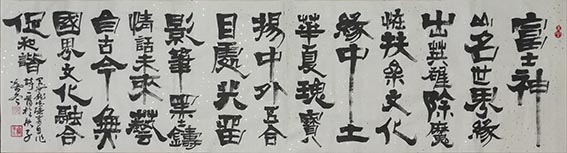 富士神
山名世界緣
出英雄除魔
怪扶桑文化
緣中土
華夏瑰寶
揚中外
目處光留
影筆墨鑄
情話未來藝
自古今無
國界文化融合
促和諧